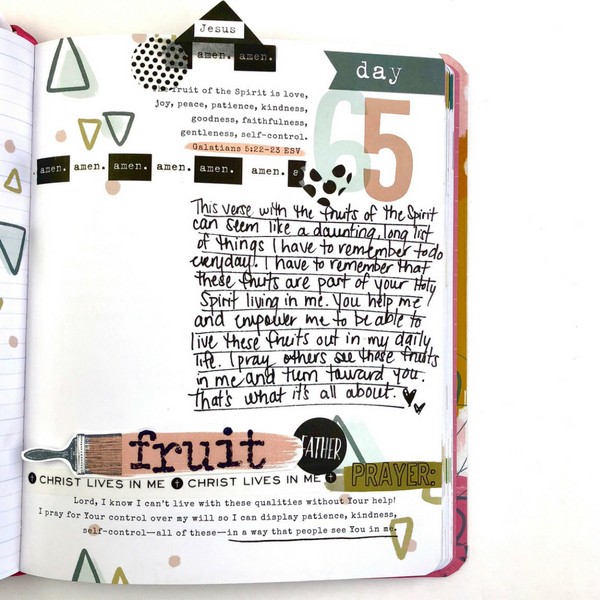 Jesus
amen. amen.
day
65
fruit of the Spirit is love,
joy, peace, patience, kindness,
goodness, faithfulness,
gentleness, self-control.
Galatians 5:22-23 ESV
amen. amen. amen. amen. amen. amen. a
This verse with the fruits of the Spirit
can seem like a daunting, long list
of things I have to remember to do
everyday! I have to remember that
these fruits are part of your Holy
Spirit living in me. You help me
and empower me to be able to
live these fruits out in my daily
life. I pray others see these fruits
in me and turn toward you.
That's what it's all about.
fruit
FATHER
CHRIST LIVES IN ME CHRIST LIVES IN ME
PRAYER:
Lord, I know I can't live with these qualities without Your help!
I pray for Your control over my will so I can display patience, kindness,
self-control—all of these—in a way that people see You in me.